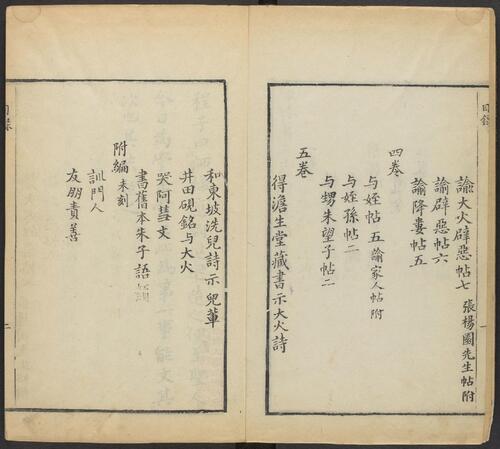 目錄
諭大火辟惡帖七 張楊園先生帖附
諭辟惡帖六
諭降婁帖五
四卷
与姪帖五 諭家人帖附
与姪孫帖二
与甥朱望子帖二
五卷
得澹生堂藏書示大火詩
和東坡洗兒詩示兒輩
井田硯銘与大火
哭阿彗文
書舊本朱子語類
附編 未刻
訓門人
友朋責善
目錄